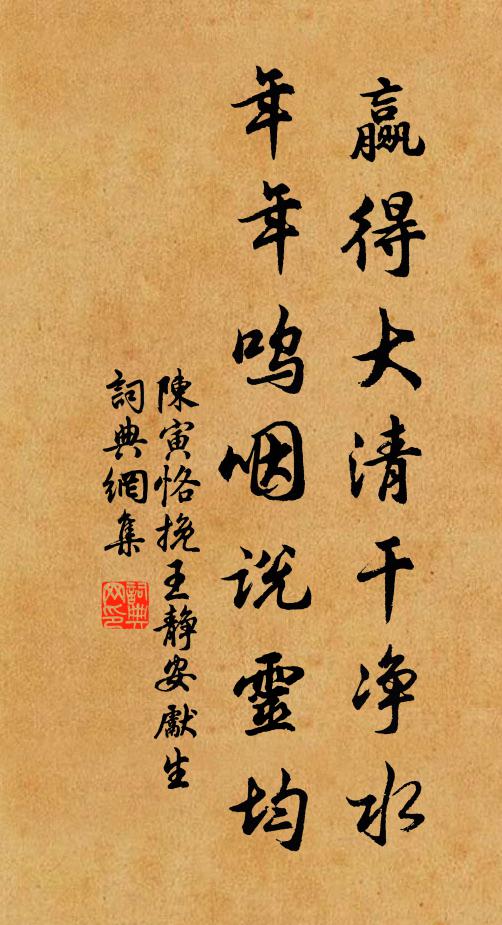 贏得大清干净水
年年呜咽说靈均
陳寅恪挽王静安獻生
詞典網集
詞典网印